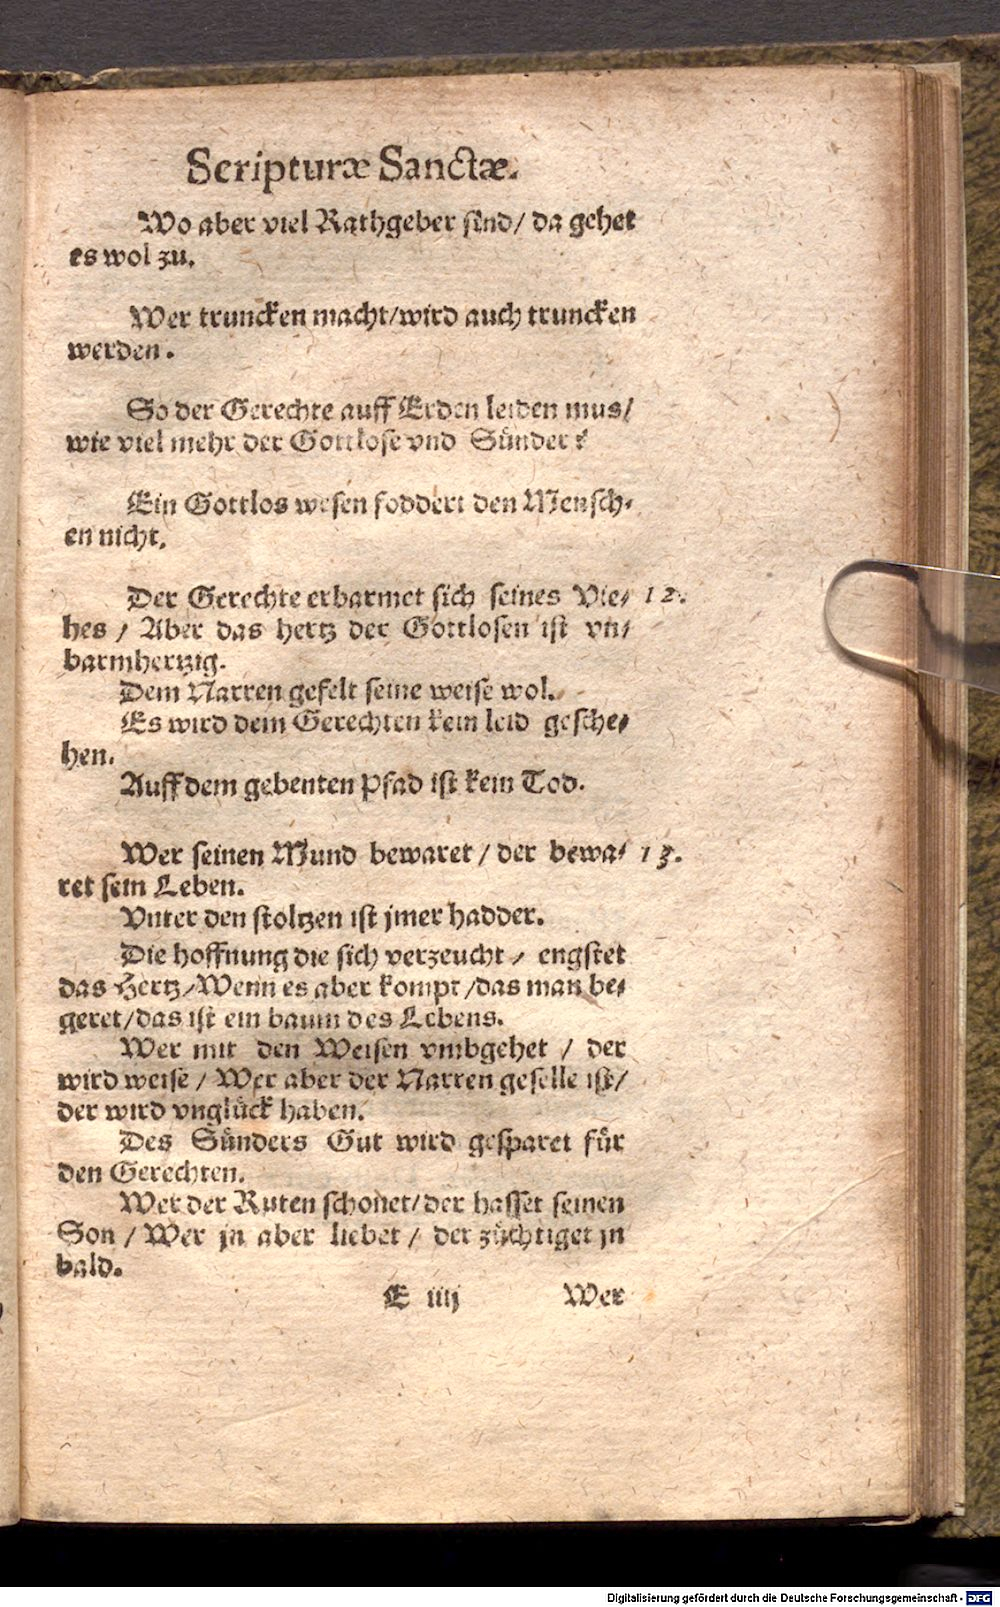 Scripturæ Sanctæ.
Wo aber viel Rathgeber sind/ da gehet
es wol zu.
Wer truncken macht/wird auch truncken
werden.
So der Gerechte auff Erden leiden mus/
wie viel mehr der Gottlose vnd Sünder?
Ein Gottlos wesen foddert den Mensch-
en nicht.
Der Gerechte erbarmet sich seines Vie- 12.
hes / Aber das hertz der Gottlosen ist vn-
barmhertzig.
Dem Narren gefelt seine weise wol.
Es wird dem Gerechten kein leid gesche-
hen.
Auff dem gebenten Pfad ist kein Tod.
Wer seinen Mund bewaret / der bewa- 13.
ret sein Leben.
Vnter den stoltzen ist jmer hadder.
Die hoffnung die sich verzeucht / engstet
das Hertz/Wenn es aber kompt /das man be-
geret/das ist ein baum des Lebens.
Wer mit den Weisen vmbgehet / der
wird weise / Wer aber der Narren geselle ist/
der wird vnglück haben.
Des Sünders Gut wird gesparet für
den Gerechten.
Wer der Ruten schonet/der hasset seinen
Son / Wer jn aber liebet / der züchtiget jn
bald.
E iiij Wer
Digitalisierung gefördert durch die Deutsche Forschungsgemeinschaft - DFG